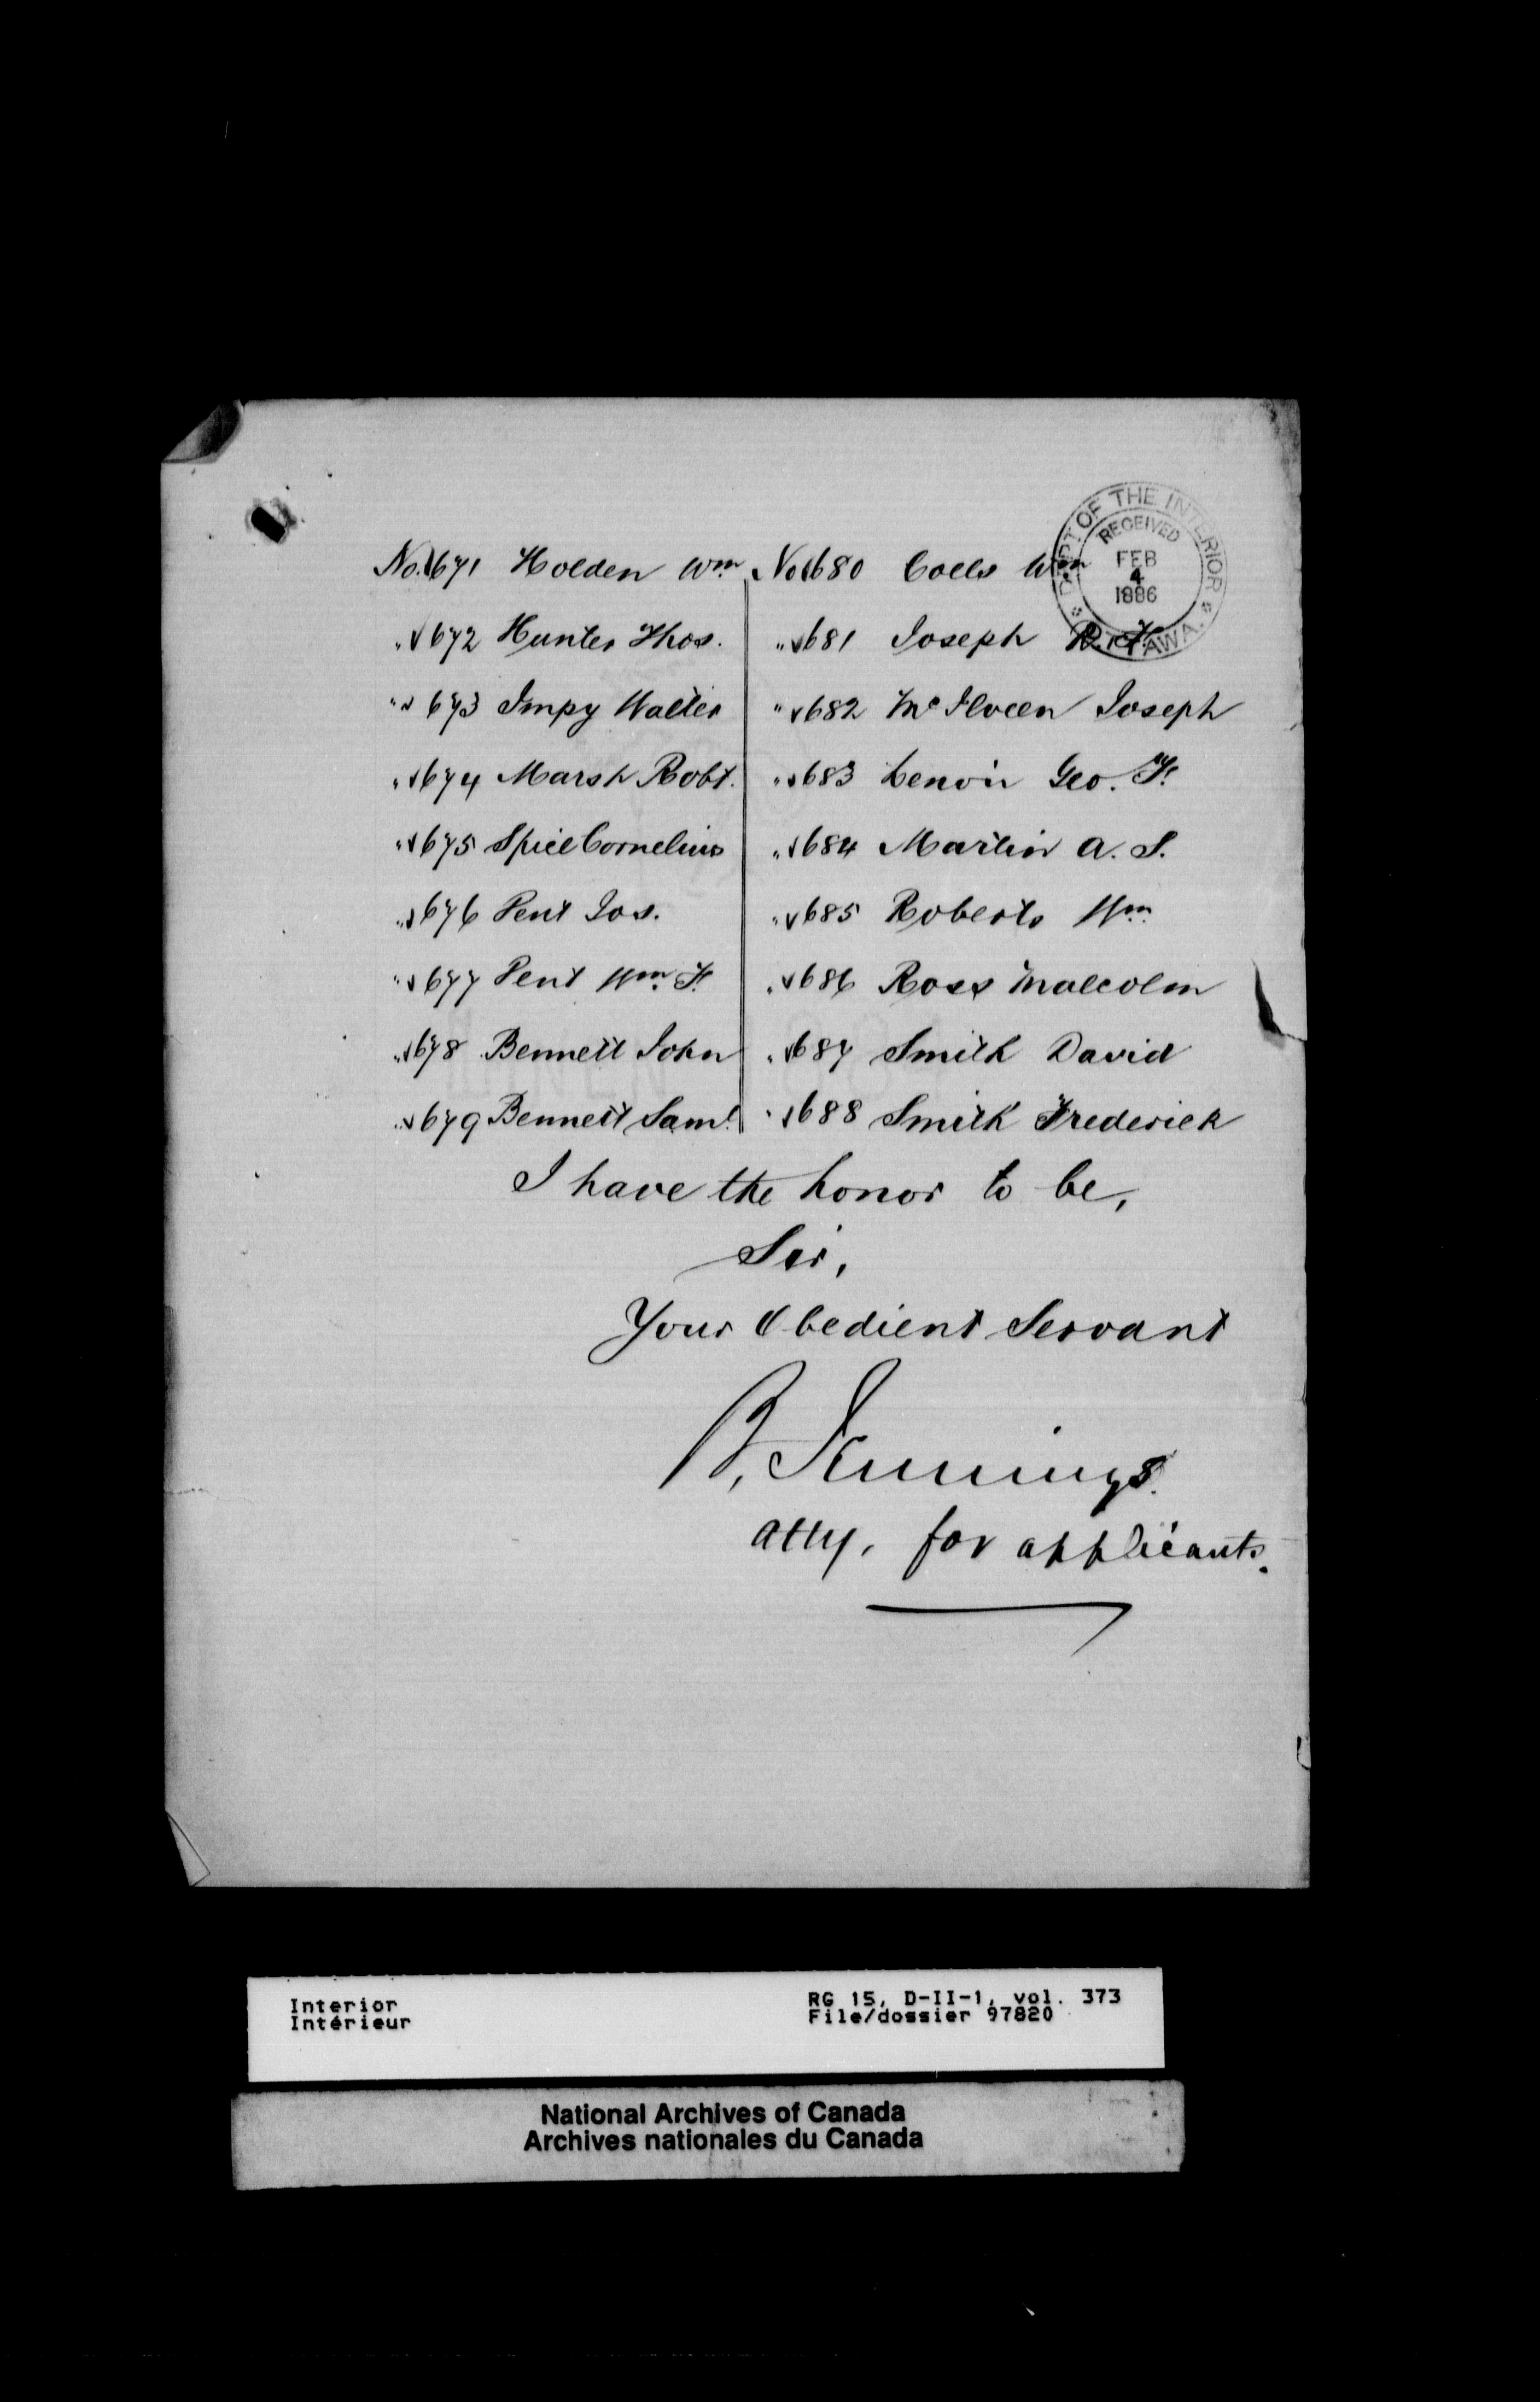 DEPT OF THE INTERIOR
RECEIVED
FEB
4
1886
OTTAWA.
No. 671 Holden Wm
" 672 Hunter Thos.
" 673 Impy Walter
" 674 Marsh Robt.
" 675 Spice Cornelius
" 676 Pent Jos.
" 677 Pent Wm. F.
" 678 Bennett John
" 679 Bennett Saml.
No 680 Coells Wm
" 681 Joseph
" 682 McIlveen Joseph
" 683 Lenoir Geo. F.
" 684 Martin A. S.
" 685 Roberts Wm.
" 686 Ross Malcolm
" 687 Smith David
" 688 Smith Frederick
I have the honor to be,
Sir,
Your Obedient Servant
B. Jennings.
Atty. for applicants.
Interior
Intérieur
RG 15, D-II-1, vol. 373
File/dossier 97820
National Archives of Canada
Archives nationales du Canada